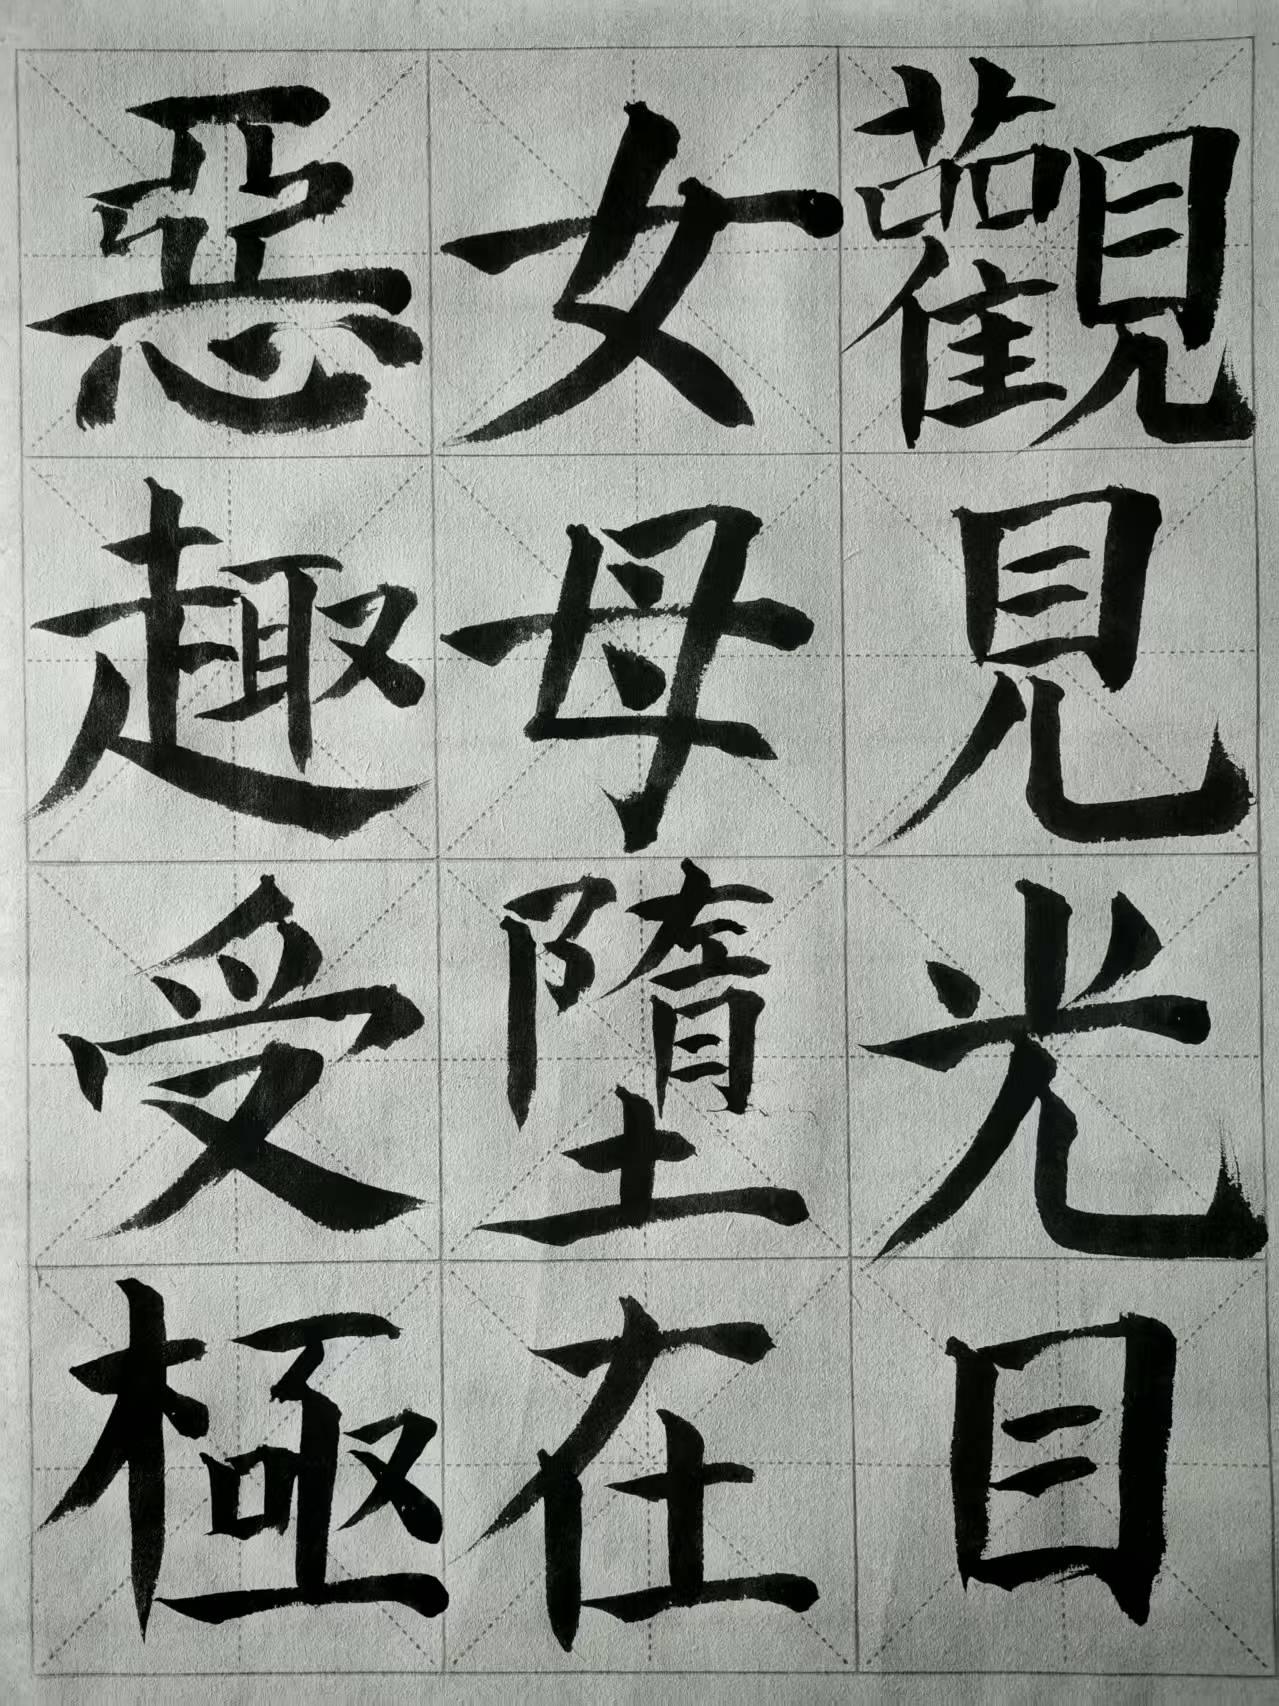 觀見光目
女母墮在
惡趣受極